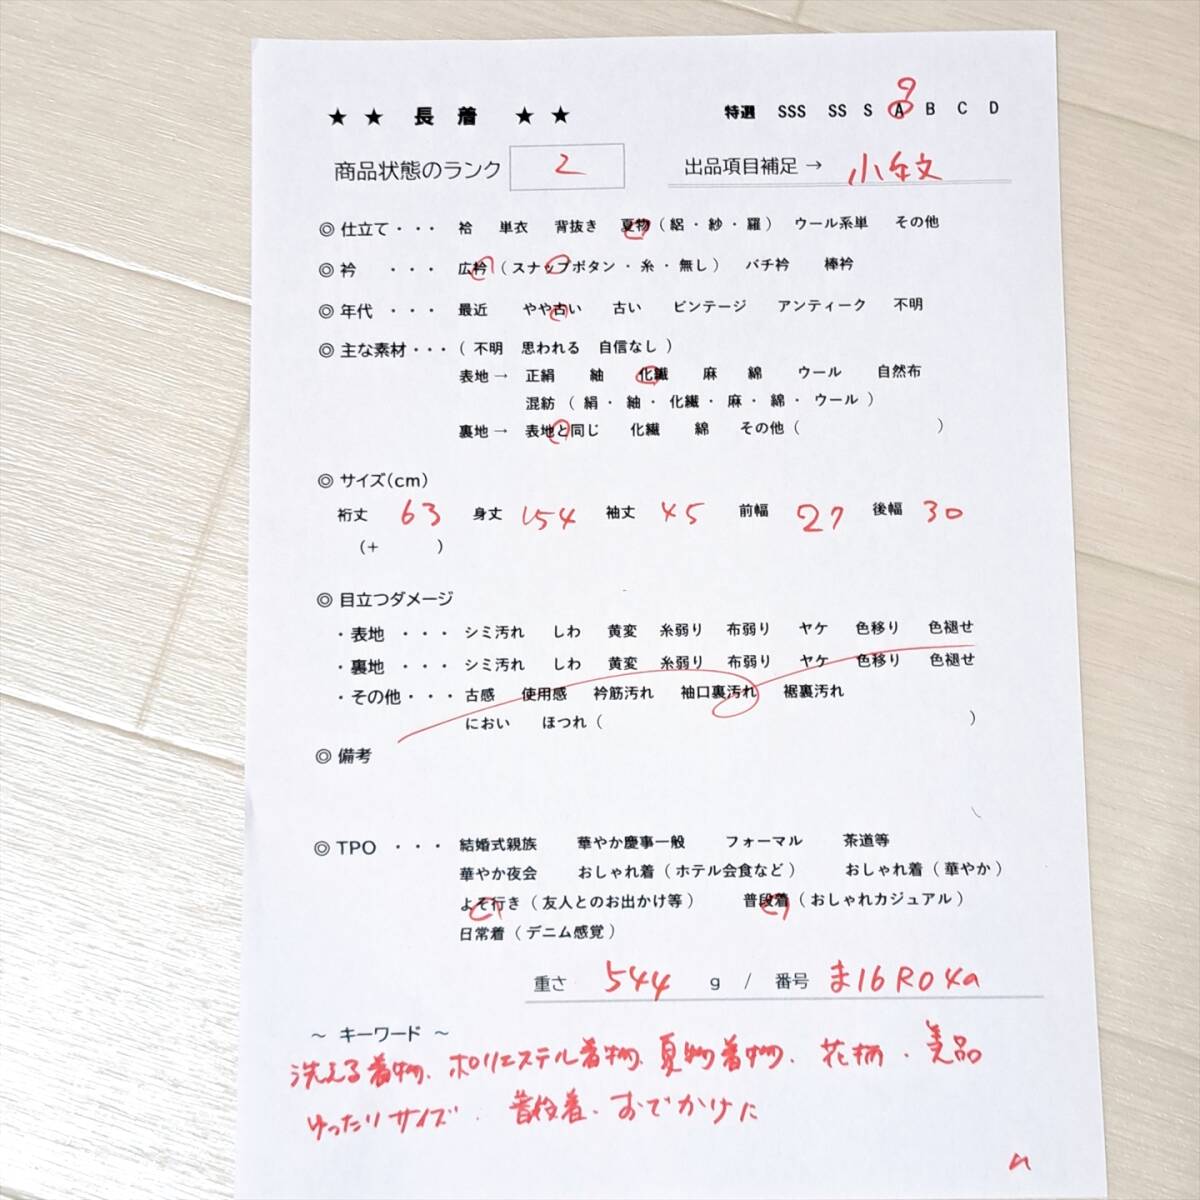 ★ ★ 長 着 ★ ★ 特選 SSS SS S A B C D
商品状態のランク 2 出品項目補足 → 小紋
◎ 仕立て ・・・ 袷 単衣 背抜き 夏物 ( 絽 ・ 紗 ・ 羅 ) ウール系単 その他
◎ 衿 ・・・ 広衿 ( スナップボタン ・ 糸 ・ 無し ) バチ衿 棒衿
◎ 年代 ・・・ 最近 やや古い 古い ビンテージ アンティーク 不明
◎ 主な素材 ・・・ ( 不明 思われる 自信なし )
表地 → 正絹 紬 化繊 麻 綿 ウール 自然布
混紡 ( 絹 ・ 紬 ・ 化繊 ・ 麻 ・ 綿 ・ ウール )
裏地 → 表地と同じ 化繊 綿 その他 ( )
◎ サイズ(cm)
裄丈 63 身丈 154 袖丈 45 前幅 27 後幅 30
(+ )
◎ 目立つダメージ
・表地 ・・・ シミ汚れ しわ 黄変 糸弱り 布弱り ヤケ 色移り 色褪せ
・裏地 ・・・ シミ汚れ しわ 黄変 糸弱り 布弱り ヤケ 色移り 色褪せ
・その他 ・・・ 古感 使用感 衿筋汚れ 袖口裏汚れ 裾裏汚れ
におい ほつれ ( )
◎ 備考
◎ TPO ・・・ 結婚式親族 華やか慶事一般 フォーマル 茶道等
華やか夜会 おしゃれ着 ( ホテル会食など ) おしゃれ着 ( 華やか )
よそ行き ( 友人とのお出かけ等 ) 普段着 ( おしゃれカジュアル )
日常着 ( デニム感覚 )
重さ 544 g / 番号 ま16R04a
～ キーワード ～
洗える着物、ポリエステル着物、夏物着物、花柄、美品
ゆったりサイズ、普段着、おでかけに